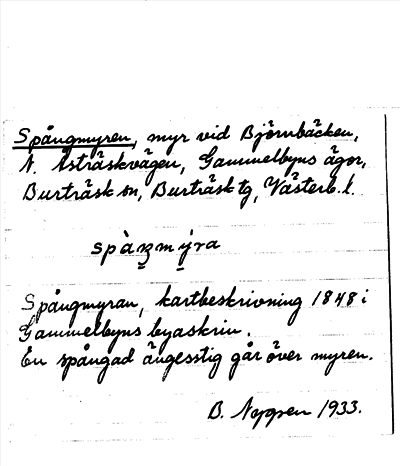 Spångmyren, myr vid Björnbäcken,
N. Åsträskvägen, Gammelbyns ägor,
Burträsk sn, Burträsk tg, Västerb. l.
spàŋmýra
Spångmyran, kartbeskrivning 1848 i
Gammelbyns byaskrin.
En spångad ängesstig går över myren.
B. 1933.